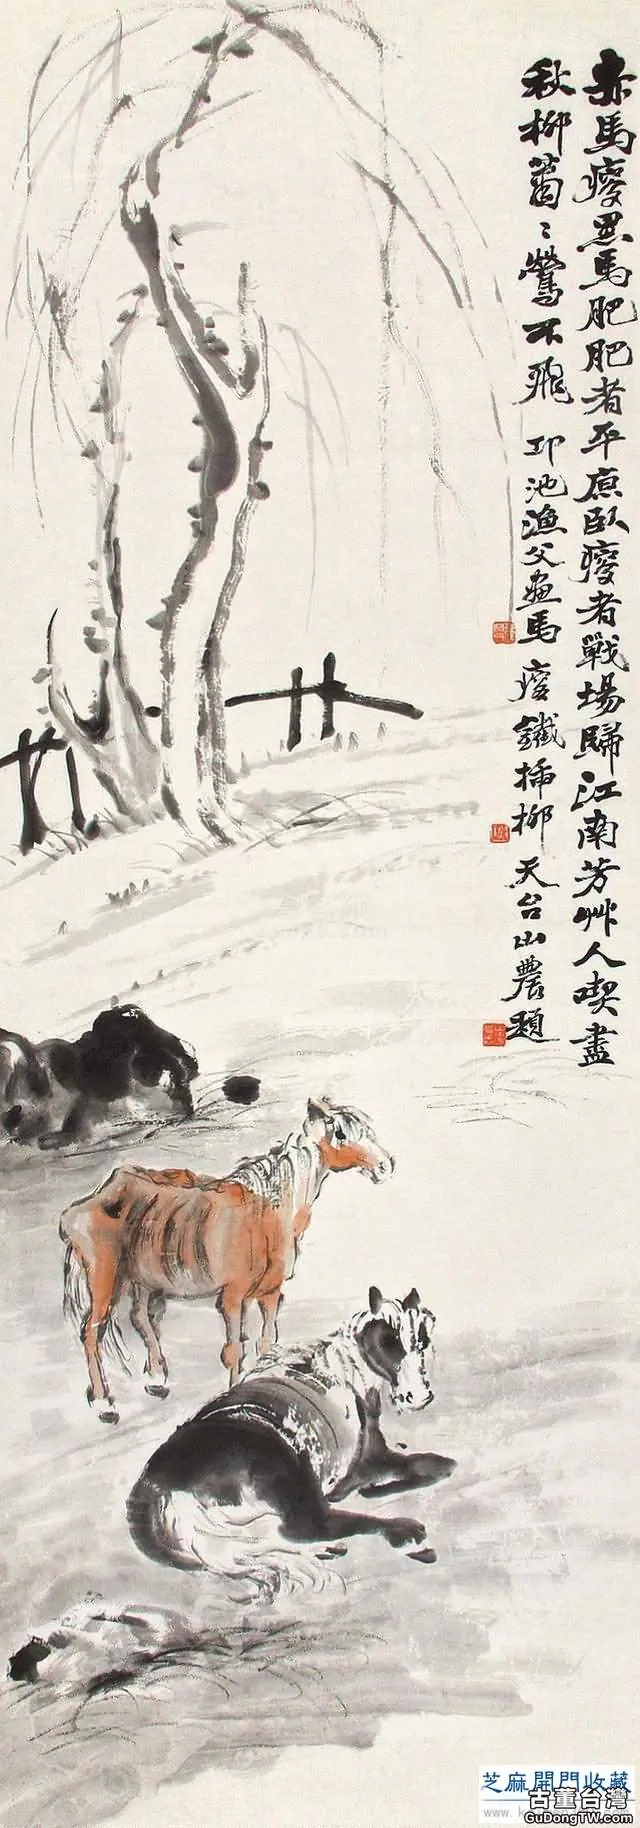 赤馬瘦黑馬肥肥者平原臥瘦者戰場歸江南芳艸人喫盡
秋柳蕭〻鶯不飛 邛池漁父畫馬 瘦鐵插柳 天台山農題
芝麻開門收藏
古董台灣
GuDongTW.com